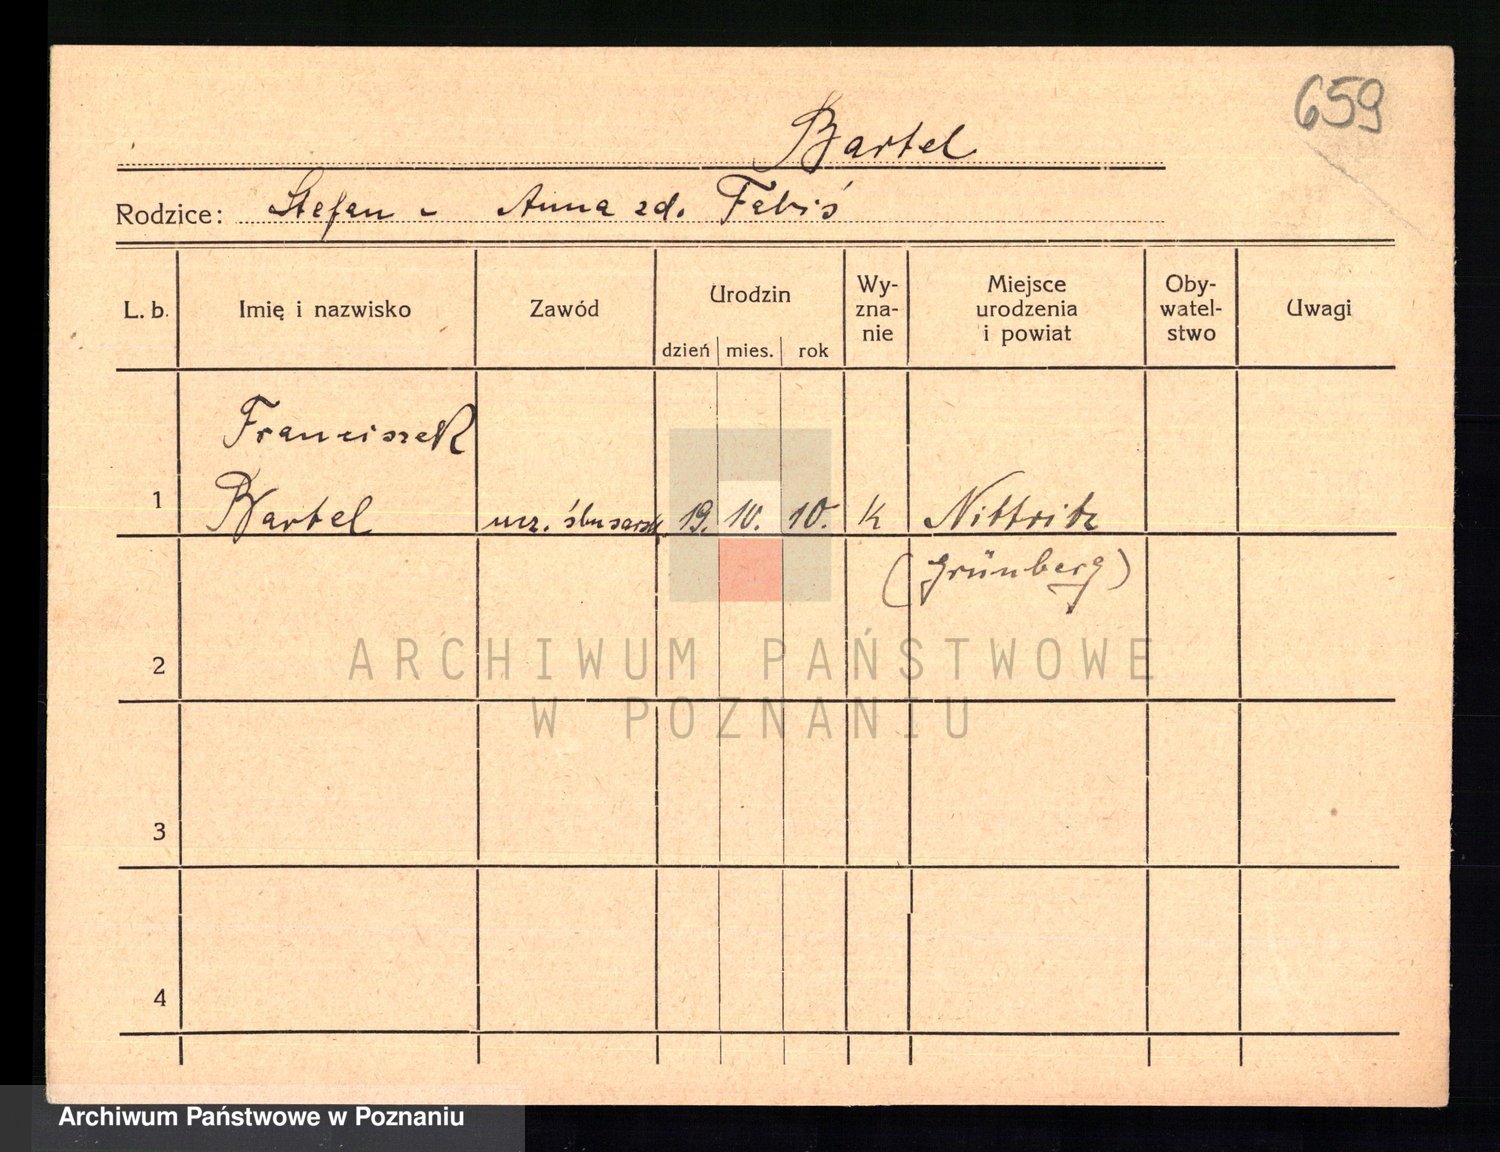 659
Bartel
Rodzice: Stefan - Anna zd. Fabiś
L. b. Imię i nazwisko Zawód Urodzin Wy-zna-nie Miejsce urodzenia i powiat Oby-watel-stwo Uwagi
dzień mies. rok
Franciszek
1 Bartel ucz. ślusarsk. 19. 10. 10. K Nittritz
(Grünberg)
2
ARCHIWUM PAŃSTWOWE
W POZNANIU
3
4
Archiwum Państwowe w Poznaniu